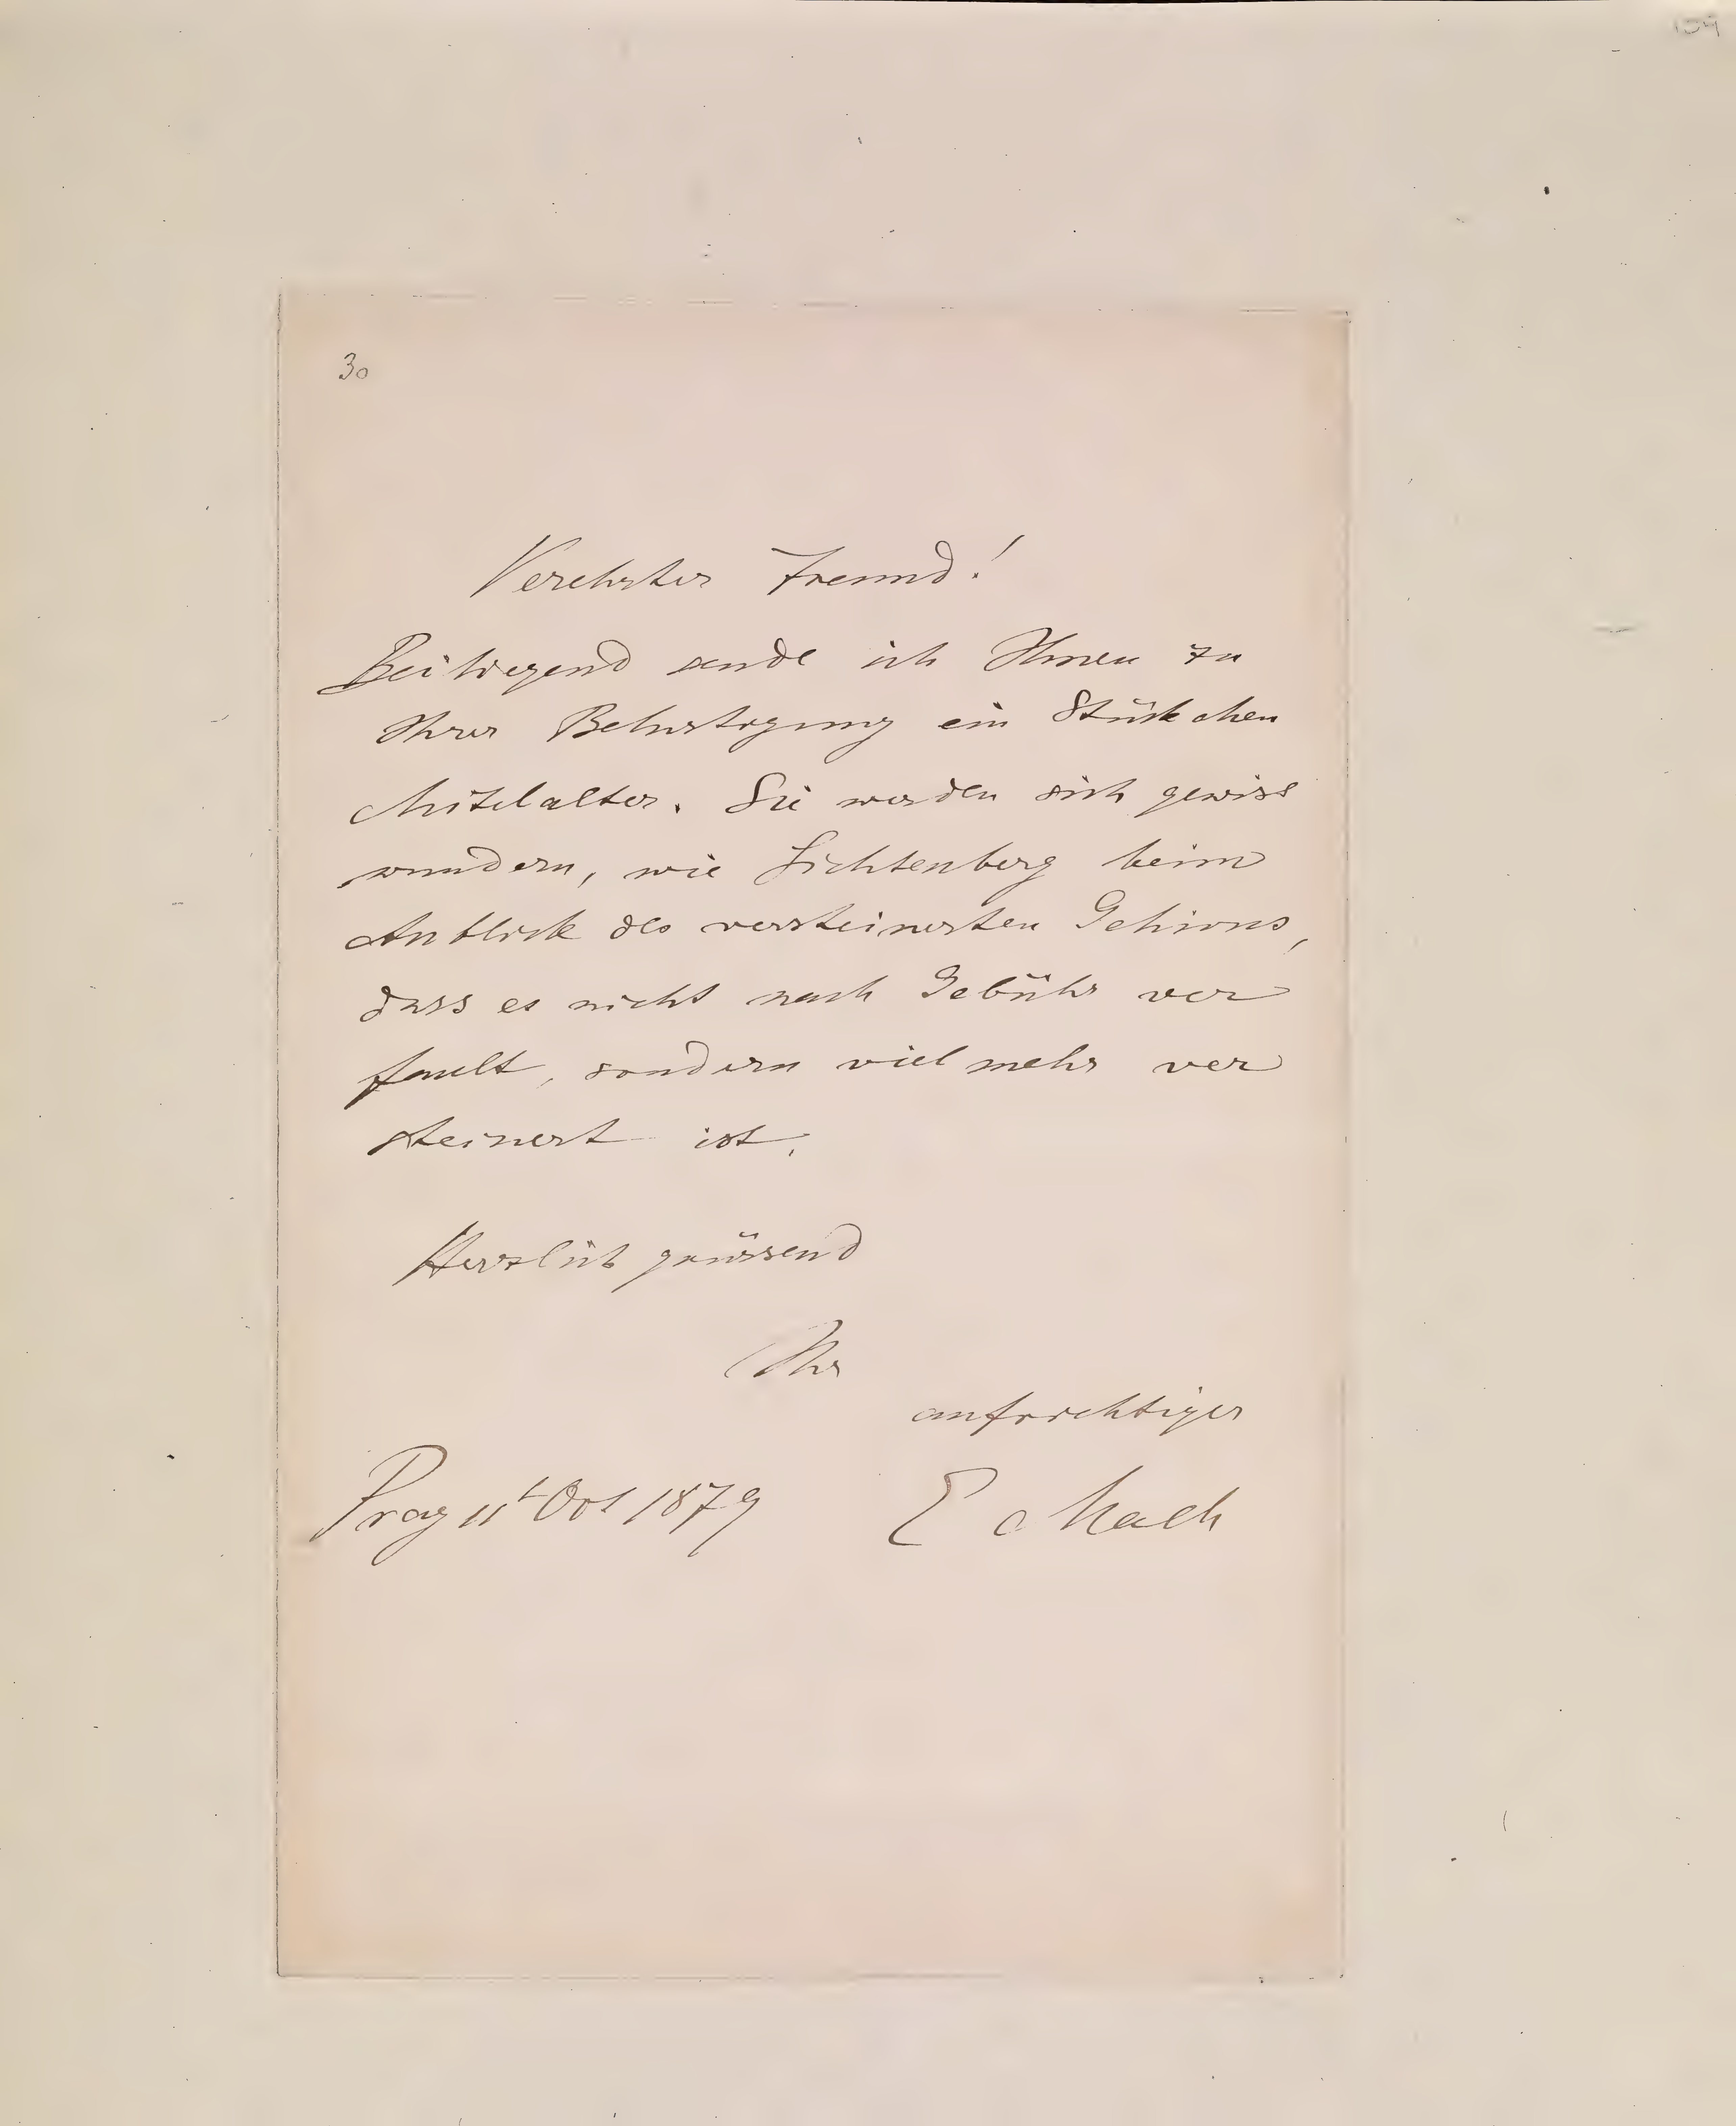 30
Verehrter Freund!
Beiliegend sende ich Ihnen zu
Ihrer Belustigung ein Stückchen
Mitelalter. Sie werden sich gewiss
wundern, wie Lichtenberg beim
Anblick des versteinerten Gehirns,
dass es nicht nach Gebühr ver
fault, sondern vielmehr ver
steinert ist.
Herzlich grüssend
Ihr
aufrichtiger
Prag 11t Oct 1879 E Mach